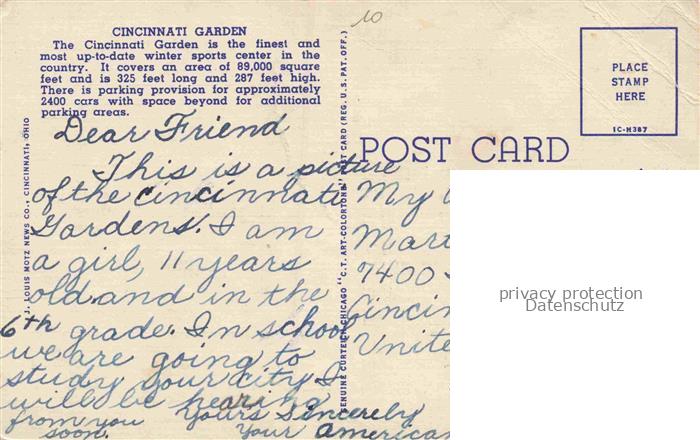 CINCINNATI GARDEN
The Cincinnati Garden is the finest and
most up-to-date winter sports center in the
country. It covers an area of 89,000 square
feet and is 325 feet long and 287 feet high.
There is parking provision for approximately
2400 cars with space beyond for additional
parking areas.
Dear Friend
This is a picture
of the cincinnati
Gardens. I am
a girl, 11 years
old and in the
6th grade. In school
we are going to
study your city I
will be hearing
from you
soon.
Yours Sincerely
Your american
J. LOUIS MOTZ NEWS CO., CINCINNATI, OHIO
GENUINE CURTEICH-CHICAGO "C.T. ART-COLORTONE" POST CARD (REG. U.S. PAT. OFF.)
10
POST CARD
PLACE
STAMP
HERE
1C-H387
My
Mart
7400
Cincin
Unite
privacy protection
Datenschutz